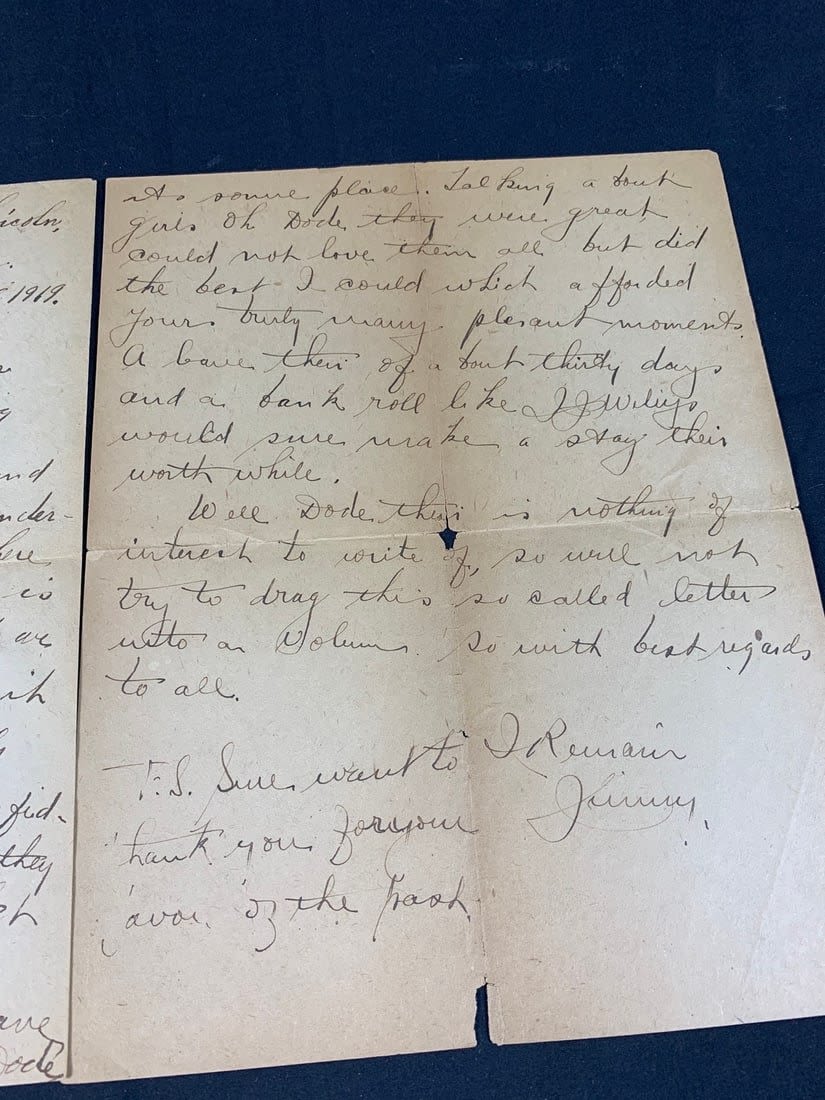 incoln,
1919.
and
nder-
here
is
are
it
fid-
they
ave
Dode
its some place.. Talking a bout
girls Oh Dode they were great
could not love them all but did
the best I could which afforded
yours truly many plesant moments.
A leave their of a bout thirty days
and a bank roll like
would sure make a stay their
worth while.
Well Dode their is nothing of
interest to write of, so will not
try to drag this so called letter
into a Volum. so with best regards
to all.
I Remain
Jimmy.
P.S. Sure want to
thank you for your
favor of the past